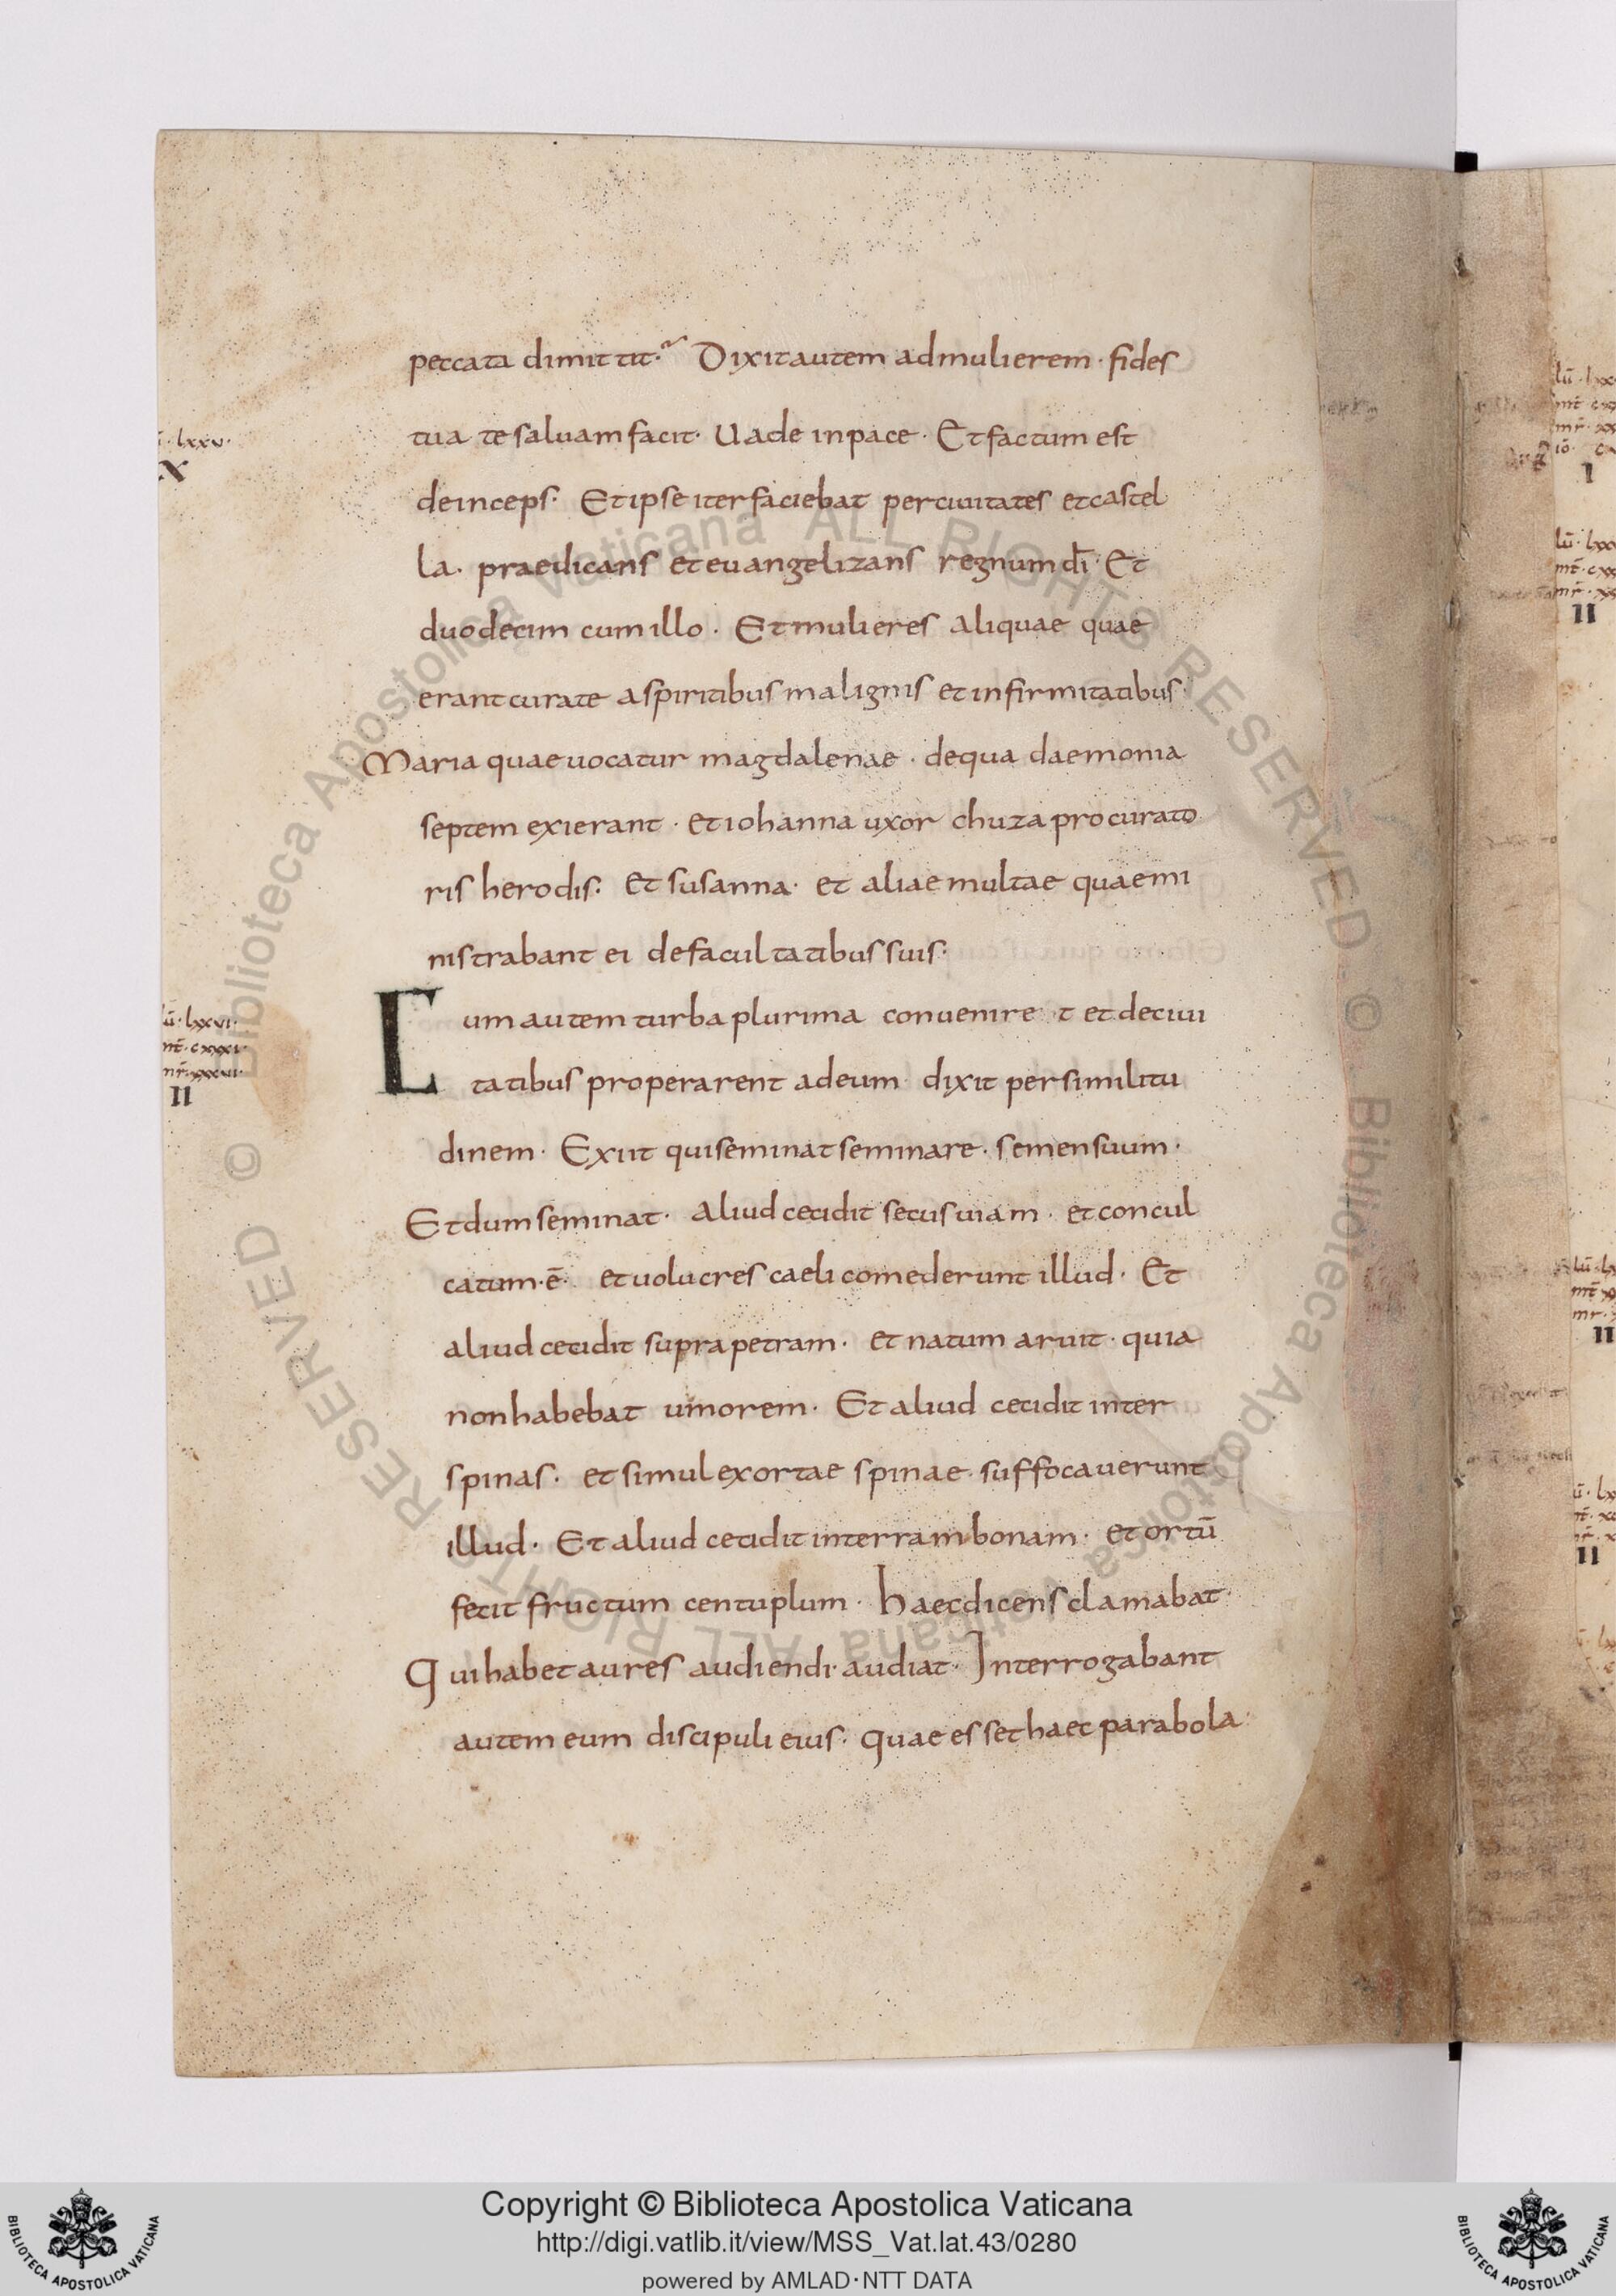 peccata dimittit· Dixit autem ad mulierem · fides
lxxv·
tua te saluam facit· Uade in pace · Et factum est
X
deinceps· Et ipse iter faciebat per ciuitates et castel
la · praedicans et euangelizans regnum dī· Et
duodecim cum illo · Et mulieres aliquae quae
erant curate a spiritibus malignis et infirmitatibus·
Maria quae uocatur magdalenae · de qua daemonia
septem exierant · et iohanna uxor chuza procurato
ris herodis: et susanna · et aliae multae quae mi
nistrabant ei de facultatibus suis·
lū· lxxvi·
mt̄· cxxxi·
mr̄· xxxvi·
II
Cum autem turba plurima conuenire t et de ciui
tatibus properarent ad eum dixit per similitu
dinem · Exiit qui seminat seminare · semen suum ·
Et dum seminat · aliud cecidit secus uiam · et concul
catum·ē· et uolucres caeli comederunt illud · Et
aliud cecidit supra petram · et natum aruit · quia
non habebat umorem · Et aliud cecidit inter
spinas · et simul exortae spinae · suffocauerunt
illud · Et aliud cecidit in terram bonam · et ortū
fecit fructum centuplum · haec dicens clamabat·
Qui habet aures audiendi· audiat· Interrogabant
autem eum discipuli eius · quae esset haec parabola·
I
II
II
II
© Biblioteca Apostolica Vaticana ALL RIGHTS RESERVED © Biblioteca Apostolica Vaticana ALL RIGHTS RESERVED
Copyright © Biblioteca Apostolica Vaticana
http://digi.vatlib.it/view/MSS_Vat.lat.43/0280
powered by AMLAD·NTT DATA
BIBLIOTECA APOSTOLICA VATICANA
BIBLIOTECA APOSTOLICA VATICANA